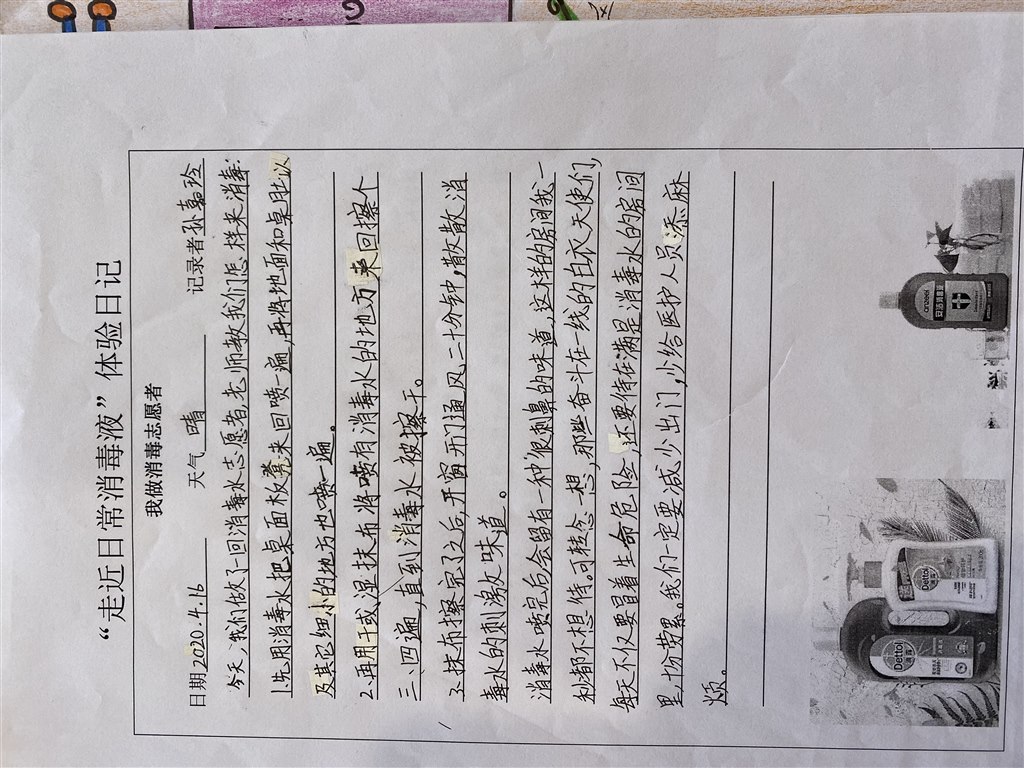 “走近日常消毒液”体验日记
我做消毒志愿者
日期2020.4.16 天气 晴 记录者孙嘉玲
今天,我们做了一回消毒水志愿者,老师教我们怎样来消毒:
1.先用消毒水把桌面板凳来回喷一遍,再将地面和桌肚以
及其它细小的地方也喷一遍。
2.再用干或湿抹布将喷有消毒水的地方来回擦个
三、四遍,直到消毒水被擦干。
3.抹布擦完了之后,开窗开门通风二十分钟,散散消
毒水的刺激味道。
消毒水喷完后会留有一种很刺鼻的味道,这样的房间我一
秒都不想待。可转念一想,那些奋斗在一线的白衣天使们,
每天不仅要冒着生命危险,还要待在满是消毒水的房间
里,十份劳累。我们一定要减少出门,少给医护人员添麻
烦。
Dettol
Dettol
anoeel
安洁